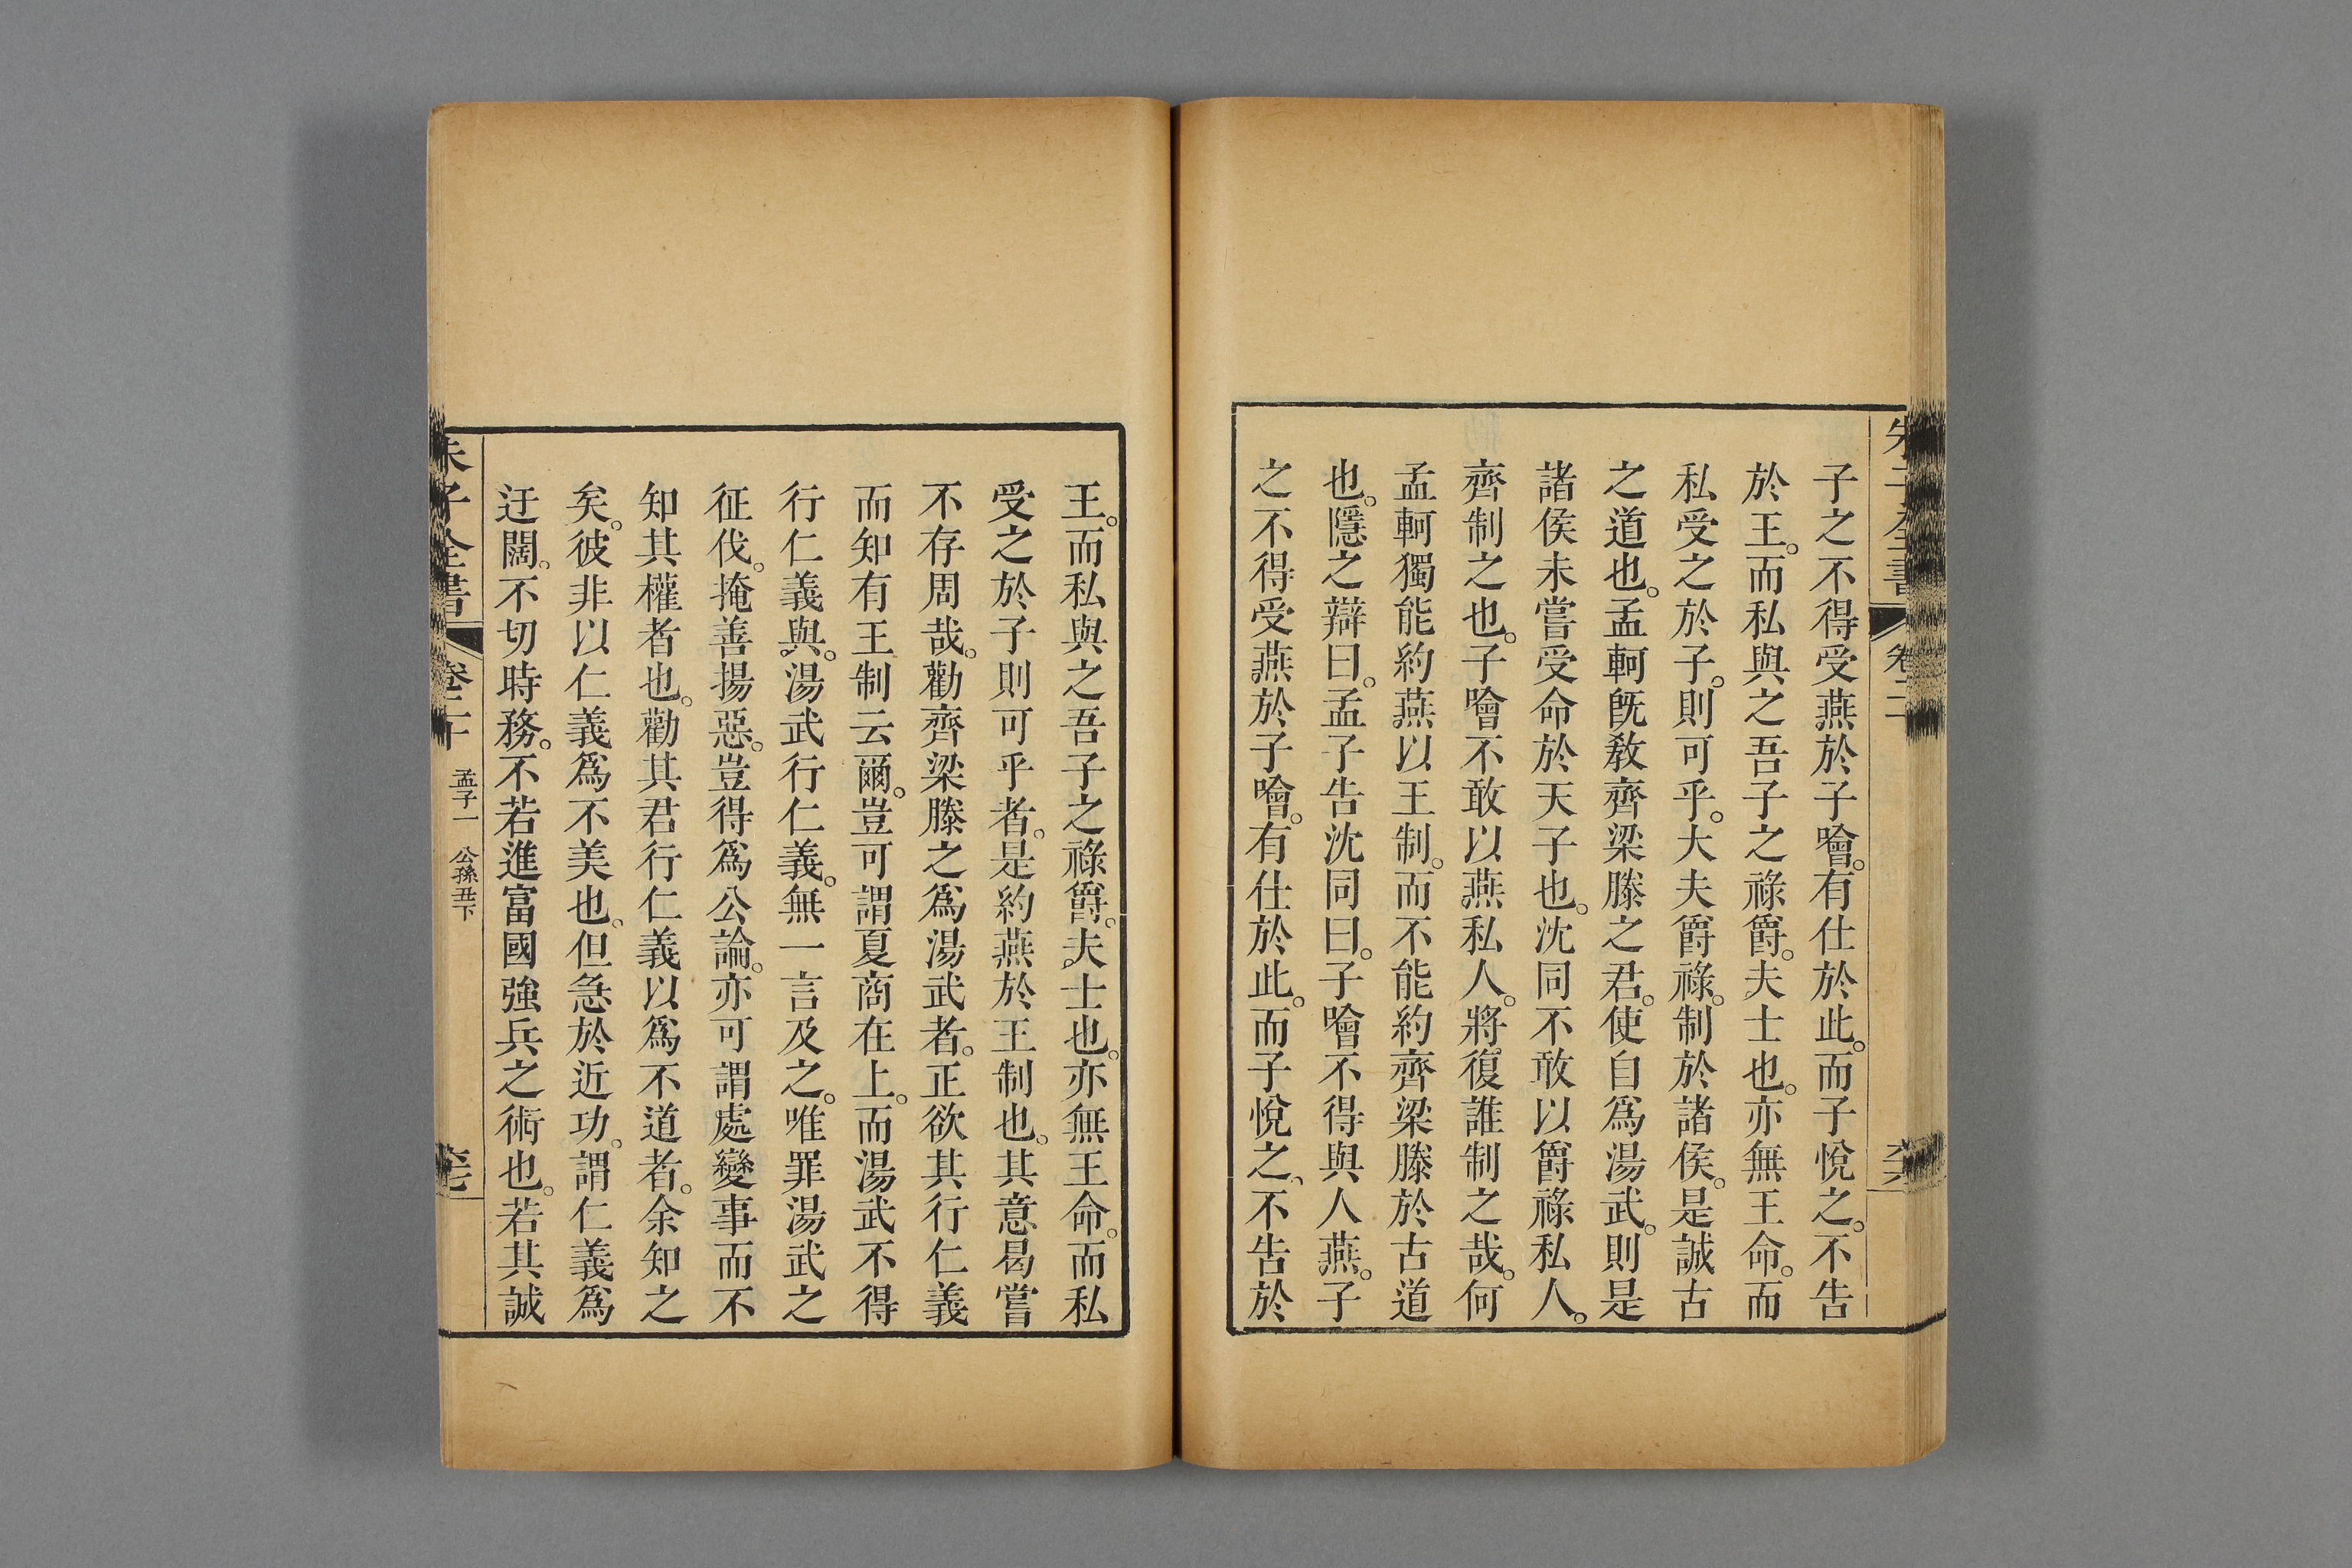 子之不得受燕於子噲。有仕於此。而子悅之。不告
於王。而私與之吾子之祿爵。夫士也。亦無王命。而
私受之於子。則可乎。大夫爵祿。制於諸侯。是誠古
之道也。孟軻旣敎齊梁滕之君。使自爲湯武。則是
諸侯未嘗受命於天子也。沈同不敢以爵祿私人。
齊制之也。子噲不敢以燕私人。將復誰制之哉。何
孟軻獨能約燕以王制。而不能約齊梁滕於古道
也。隱之辯曰。孟子告沈同曰。子噲不得與人燕。子
之不得受燕於子噲。有仕於此。而子悅之、不告於
王。而私與之吾子之祿爵。夫士也。亦無王命。而私
受之於子則可乎者。是約燕於王制也。其意曷嘗
不存周哉。勸齊梁滕之爲湯武者。正欲其行仁義
而知有王制云爾。豈可謂夏商在上。而湯武不得
行仁義與。湯武行仁義。無一言及之。唯罪湯武之
征伐。掩善揚惡。豈得爲公論。亦可謂處變事而不
知其權者也。勸其君行仁義以爲不道者。余知之
矣。彼非以仁義爲不美也。但急於近功。謂仁義爲
迂闊。不切時務。不若進富國強兵之術也。若其誠
朱子全書 卷二十 孟子一 公孫丑下